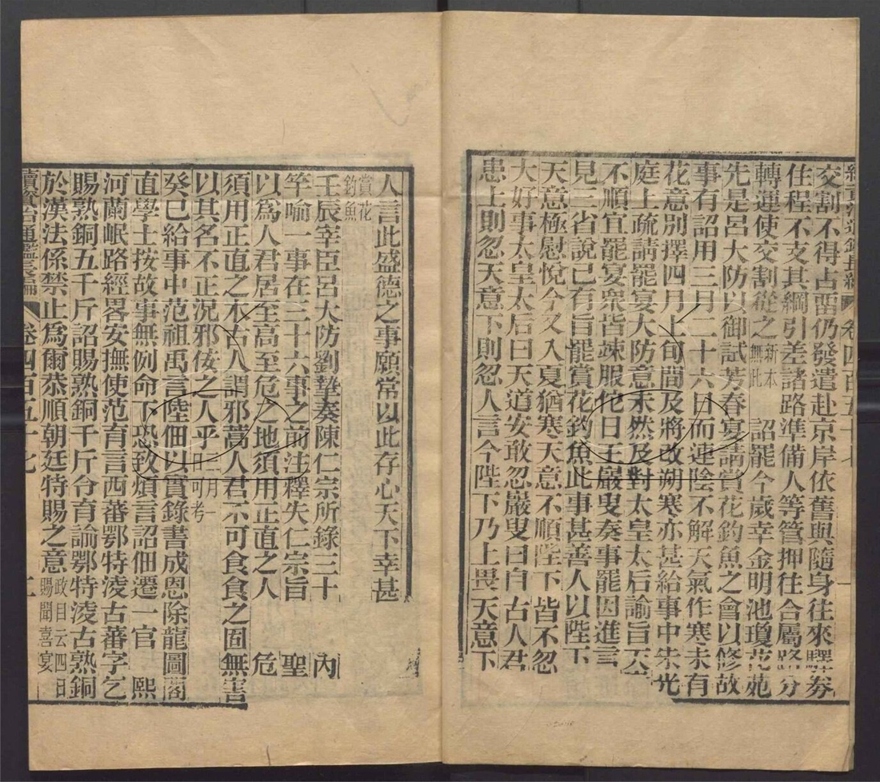 續資治通鑑長編 卷四百五十七
交割不得占畱仍發遣赴京岸依舊與隨身往來驛券
住程不支其綱引差諸路準備人等管押往合屬路分
轉運使交割從之新本無此 詔罷今歲幸金明池瓊苑
先是呂大防以御試芳春宴請賞花釣魚之會以修故
事有詔用三月二十六日而連陰不解天氣作寒未有
花意別擇四月上旬間及將改朔寒亦甚給事中朱光
庭上疏請罷宴大防意未然及對太皇太后諭旨天
不順宜罷宴眾皆竦服佗日王巖叟奏事罷因進言
見三省說已有旨罷賞花釣魚此事甚善人以陛下
天意極慰悅今又入夏猶寒天意不順陛下皆不忽
大好事太皇太后曰天道安敢忽巖叟曰自古人君
患上則忽天意下則忽人言今陛下乃上畏天意下
人言此盛德之事願常以此存心天下幸甚
賞花釣魚
壬辰宰臣呂大防劉摯奏陳仁宗所錄三十 內
竿喻一事在三十六事之前注釋失仁宗旨 聖
以為人君居至高至危之地須用正直之人 危
須用正直之木古人謂邪蒿人君不可食食之固無害
以其名不正況邪佞之人乎二月一日可考
癸巳給事中范祖禹言陸佃以實錄書成恩除龍圖閣
直學士按故事無例命下恐致煩言詔佃遷一官 熙
河蘭岷路經畧安撫使范育言西蕃鄂特淩古蕃字乞
賜熟銅五千斤詔賜熟銅千斤令育諭鄂特淩古熟銅
於漢法係禁止為爾恭順朝廷特賜之意政目云四日賜聞喜宴
續資治通鑑長編 卷四百五十七 二